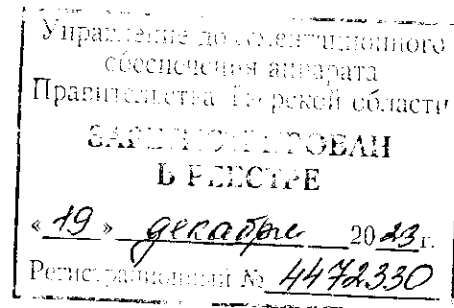 Управление документационного
обеспечения аппарата
Правительства Тверской области
ЗАРЕГИСТРИРОВАН
В РЕЕСТРЕ
« 19 » декабря 2023 г.
Регистрационный № 4472330